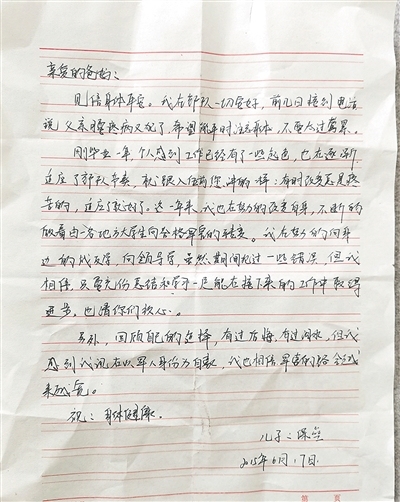 亲爱的爸妈：
见信身体平安。我在部队一切安好，前几日接到电话
说父亲腰疼病又犯了，希望做事时注意身体，不要太过劳累。
刚毕业一年，个人感到工作已经有了一些起色，也在逐渐
适应了部队节奏，就跟入伍前您讲的一样：有时改变总是痛
苦的，适应了就好了。这一年来，我也在努力的改变自身，不断的
做着由一名地方大学生向合格军官的转变。我在努力的向身
边的战友学，向领导学，虽然期间犯过一些错误，但我
相信，只要充份总结和学习一定能在接下来的工作中取得
进步，也请你们放心。
另外，回顾自己的选择，有过后悔，有过泪水，但我
感到我现在以军人身份为自豪，我也相信军营的路会越
来越宽。
祝：身体健康。
儿子：保
2015年6月17日
第 页